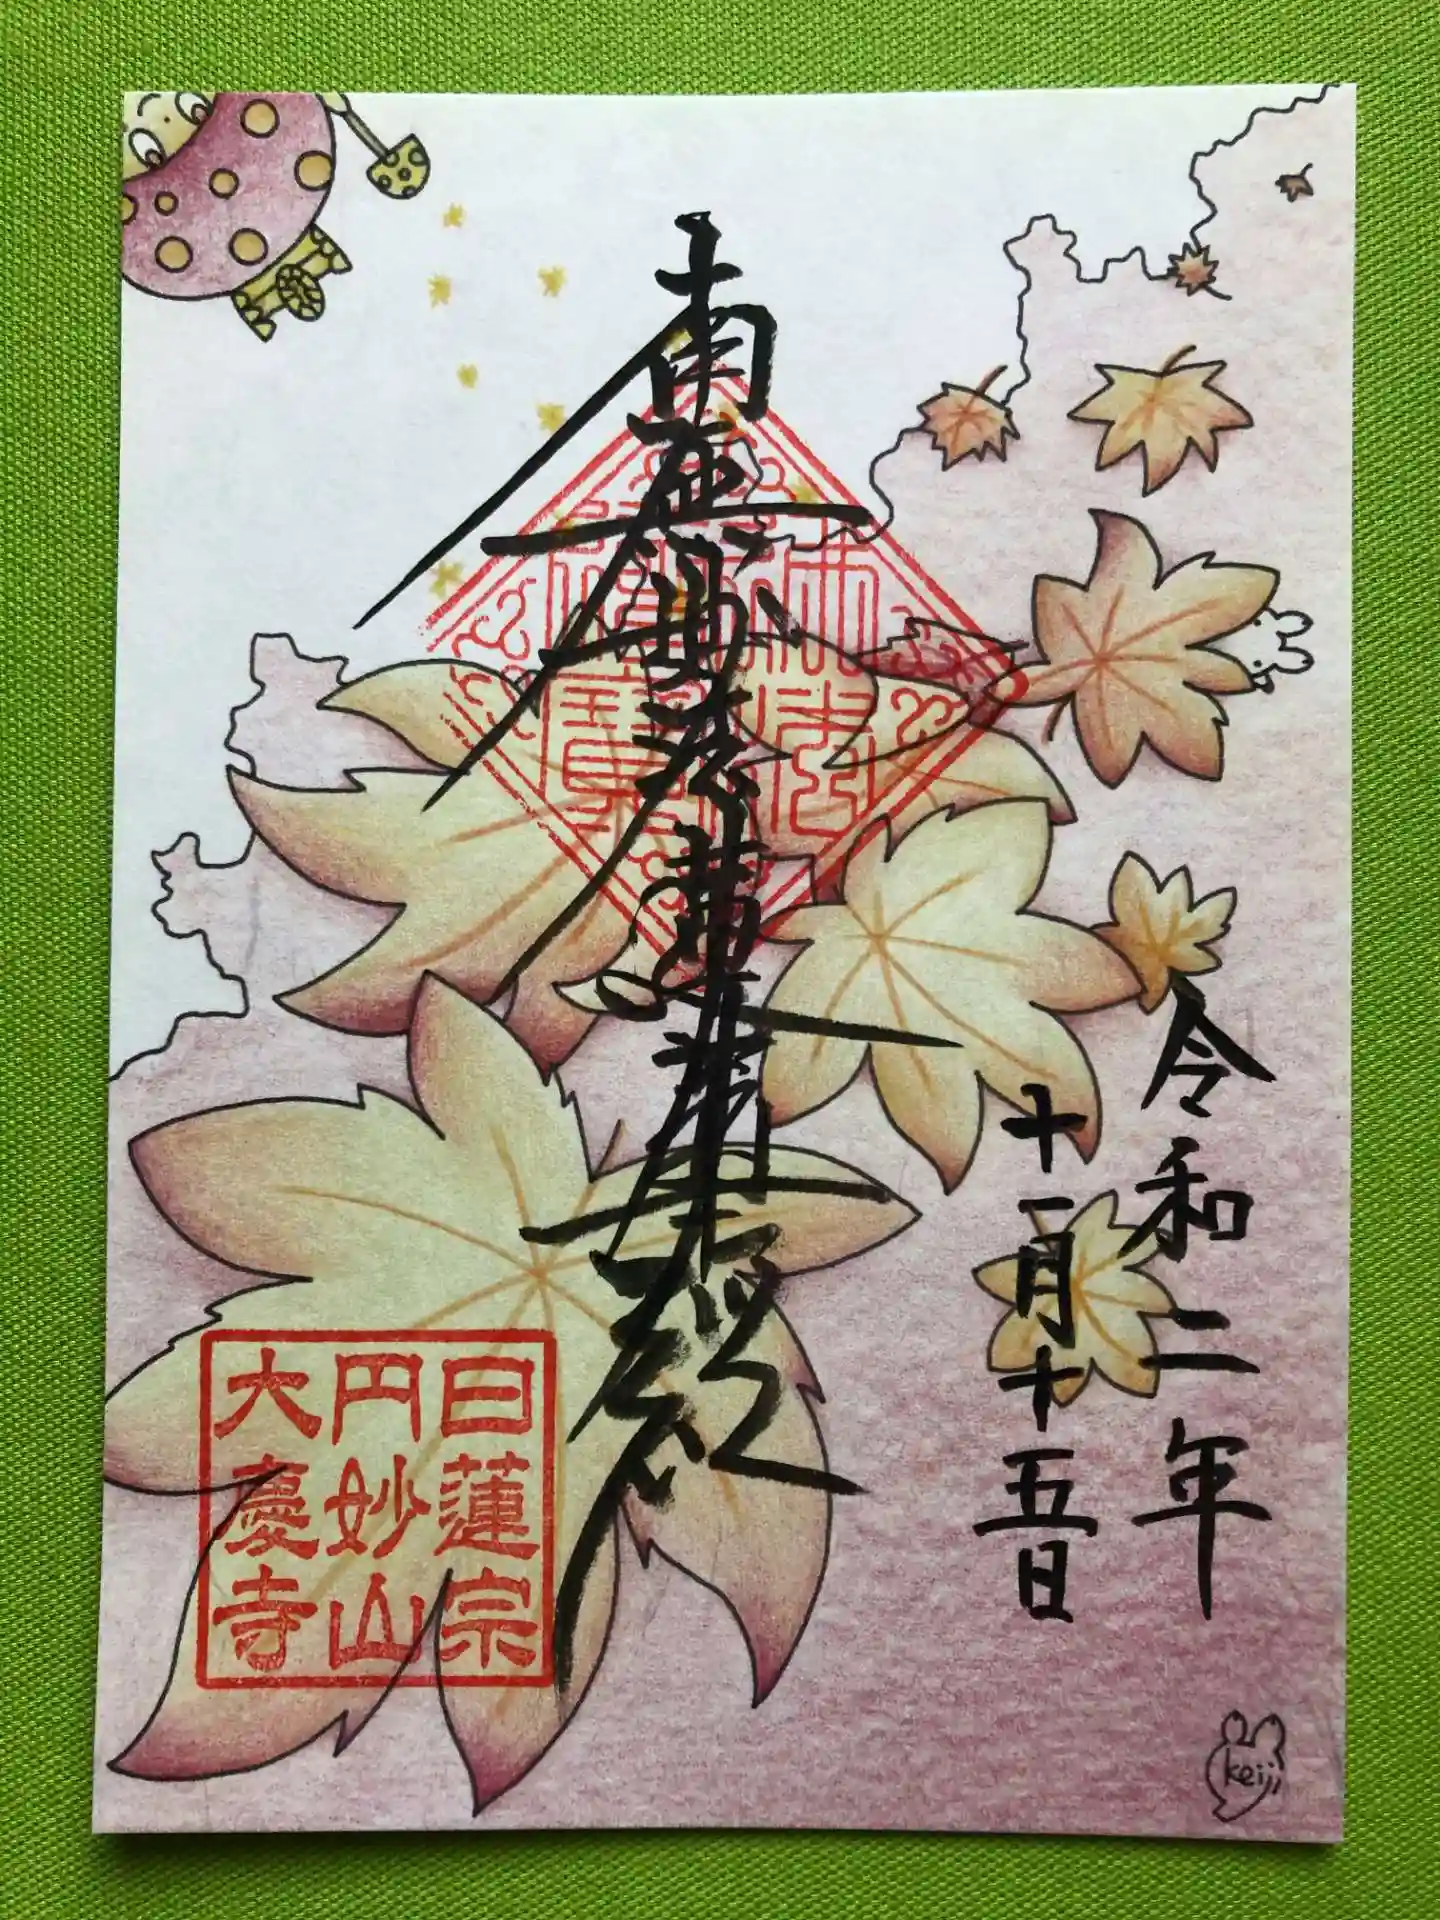 令和二年
十一月十五日
南無妙法蓮華経
佛法
僧寶
日蓮宗
円妙山
大慶寺
keiji